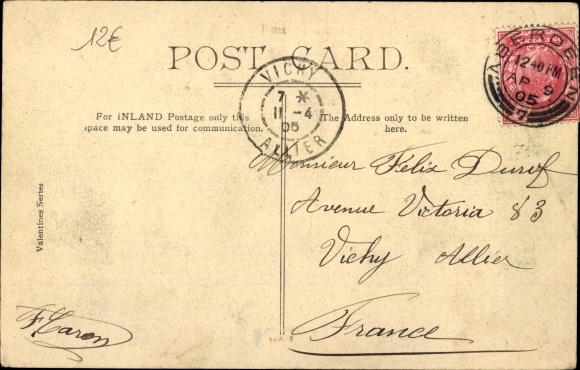 12€
POST CARD.
ABERDEEN
12 40 PM
AP 9
05
7
VICHY
7 *
11 - 4
05
ALLIER
For INLAND Postage only this
space may be used for communication.
The Address only to be written
here.
Valentines Series
Monsieur Félix Duref
Avenue Victoria 83
Vichy Allier
France
F. Caron